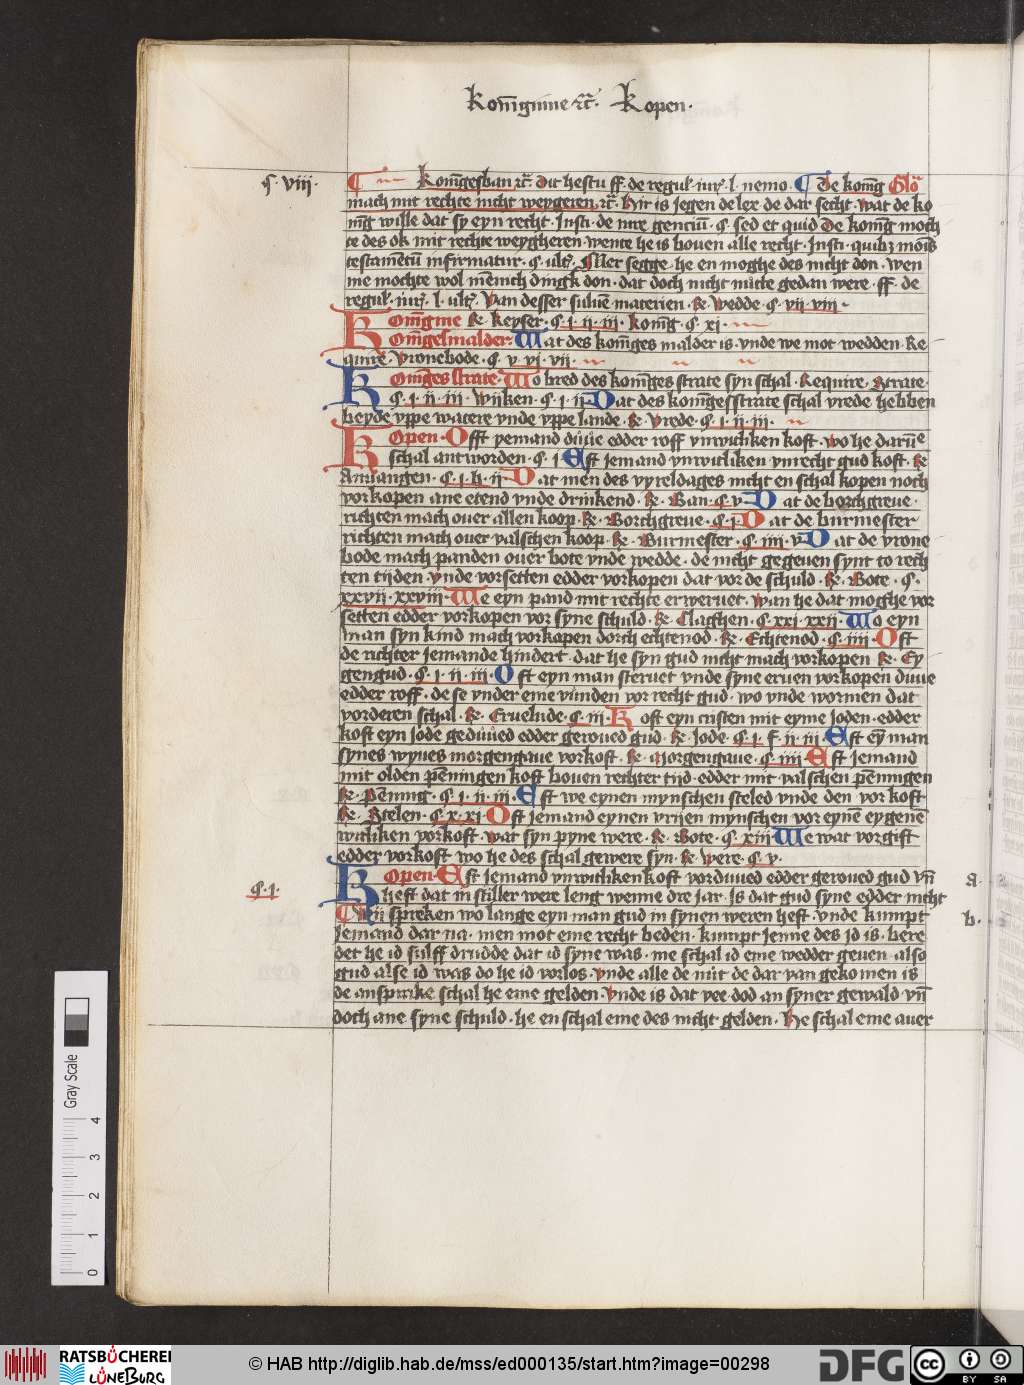 Koniginne ⁊c̄. Kopen.
ꝯ. viii.
Konīgesban ⁊c̄. Dit hestu ff. de regul. iur̄. l. nemo. De konīg Glo
mach mit rechte nicht weygeren ⁊c̄. Hir is jegen de lex de dar secht. wat de ko
nīg wille dat sy eyn recht. Insti. de iure genciū. ꝯ. sed et quid De konīg moch
te des ok mit rechte weygheren wente he is bouen alle recht. Insti. quibꝫ mōis
testamētū infirmatur. ꝯ. ult̉. Iller segge he en moghe des nicht don. wen
me mochte wol mēnich dingk don. dat doch nicht nutte gedan were. ff. de
regul. iur̄. l. ult̉. Van desser suluē materien. Re wedde. ꝯ. vii. viii.
Konīgine Re. keyser. ꝯ. i. ii. iii. konīg. ꝯ. xi.
Konīgelmalder. Wat des konīges malder is. vnde we mot wedden. Re
quire. vronebode. ꝯ. v. vi. vii.
Konīges strate. Wo bred des konīges strate syn schal. Require. Strate.
ꝯ. i. ii. iii. Wijken. ꝯ. i. ii. Dat des konīgesstrate schal vrede hebben
beyde vppe watere vnde vppe lande. Re. vrede. ꝯ. i. ii. iii.
Kopen. Offt yemand duue edder roff vnwitliken koft. wo he darūe
schal antworden. ꝯ. i. Est jemand vnwitliken vnrecht gud koft. Re
Anuangen. ꝯ. i. b. ii. Dat men des vyreldages nicht en schal kopen noch
vorkopen ane etend vnde drinkend. Re. Ban. ꝯ. v. Dat de borchgreue
richten mach ouer allen koop. Re. Borchgreue. ꝯ. i. Dat de burmester
richten mach ouer valschen koop. Re. Burmester. ꝯ. iiii. v. Dat de vrone
bode mach panden ouer bote vnde wedde. de nicht gegeuen synt to rech
ten tijden. vnde vorsetten edder vorkopen dat vor de schuld. Re. Bote. ꝯ.
xxvii. xxviii. We eyn pand mit rechte erweruet. wan he dat moghe vor
setten edder vorkopen vor syne schuld. Re Claghen. ꝯ. xxi. xxii. Wo eyn
man syn kind mach vorkopen dorch echtenod. Re. Echtenod. ꝯ. iiii. Oft
de richter jemande hindert. dat he syn gud nicht mach vorkopen Re. Ey
gengud. ꝯ. i. ii. iii. Oft eyn man steruet vnde syne eruen vorkopen duue
edder roff. de se vnder eme vūnden vor recht gud. wo vnde wormen dat
vorderen schal. Re. Eruelude. ꝯ. iii. Koft eyn cristen mit eyme Joden. edder
koft eyn jode geduued edder geroued gud. Re. Jode. ꝯ. i. f. ii. iii. Est eȳ man
synes wyues morgengaue vorkoft. Re. Morgengaue. ꝯ. iiii. Est jemand
mit olden pēnnigen koft bouen rechter tijd. edder mit valschen pēnnigen
Re. Pēning. ꝯ. i. ii. iii. Est we eynen mynschen steled vnde den vorkoft
Re. Stelen. ꝯ. x. xi. Oft jemand eynen vrijen mynschen vor eynē eygenē
witliken vorkoft. wat syn pyne were. Re. Bote. ꝯ. xiii. We wat vorgift
edder vorkoft wo he des schal gewere syn. Re were. ꝯ. v.
ꝯ. i.
Kopen. Est jemand vnwitliken koft vorduued edder geroued gud vn̄ a.
heft dat in stiller were leng wenne dre jar. Is dat gud syne edder nicht
Wij spreken wo lange eyn man gud in synen weren heft. vnde kumpt b.
Jemand dar na. men mot eme recht beden. kumpt jenne des id is. bere
det he id sulff drudde dat id syne was. me schal id eme wedder geuen also
gud alse id was do he id vorlos. vnde alle de nut de dar van gekomen is
de ansprake schal he eme gelden. vnde is dat vee dod an syner gewald vn̄
doch ane syne schuld. he en schal eme des nicht gelden. He schal eme auer
Gray Scale
0 1 2 3 4
RATSBÜCHEREI LÜNEBURG
© HAB http://diglib.hab.de/mss/ed000135/start.htm?image=00298
DFG
cc BY SA